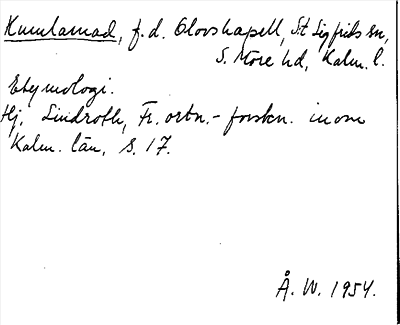 Kumlamad, f.d. Olovskapell, St Sigfrids sn,
S. Möre hd, Kalm. l.
Etymologi.
Hj. Lindroth, Fr. ortn.-forskn. inom
Kalm. län, s. 17.
Å. W. 1954.